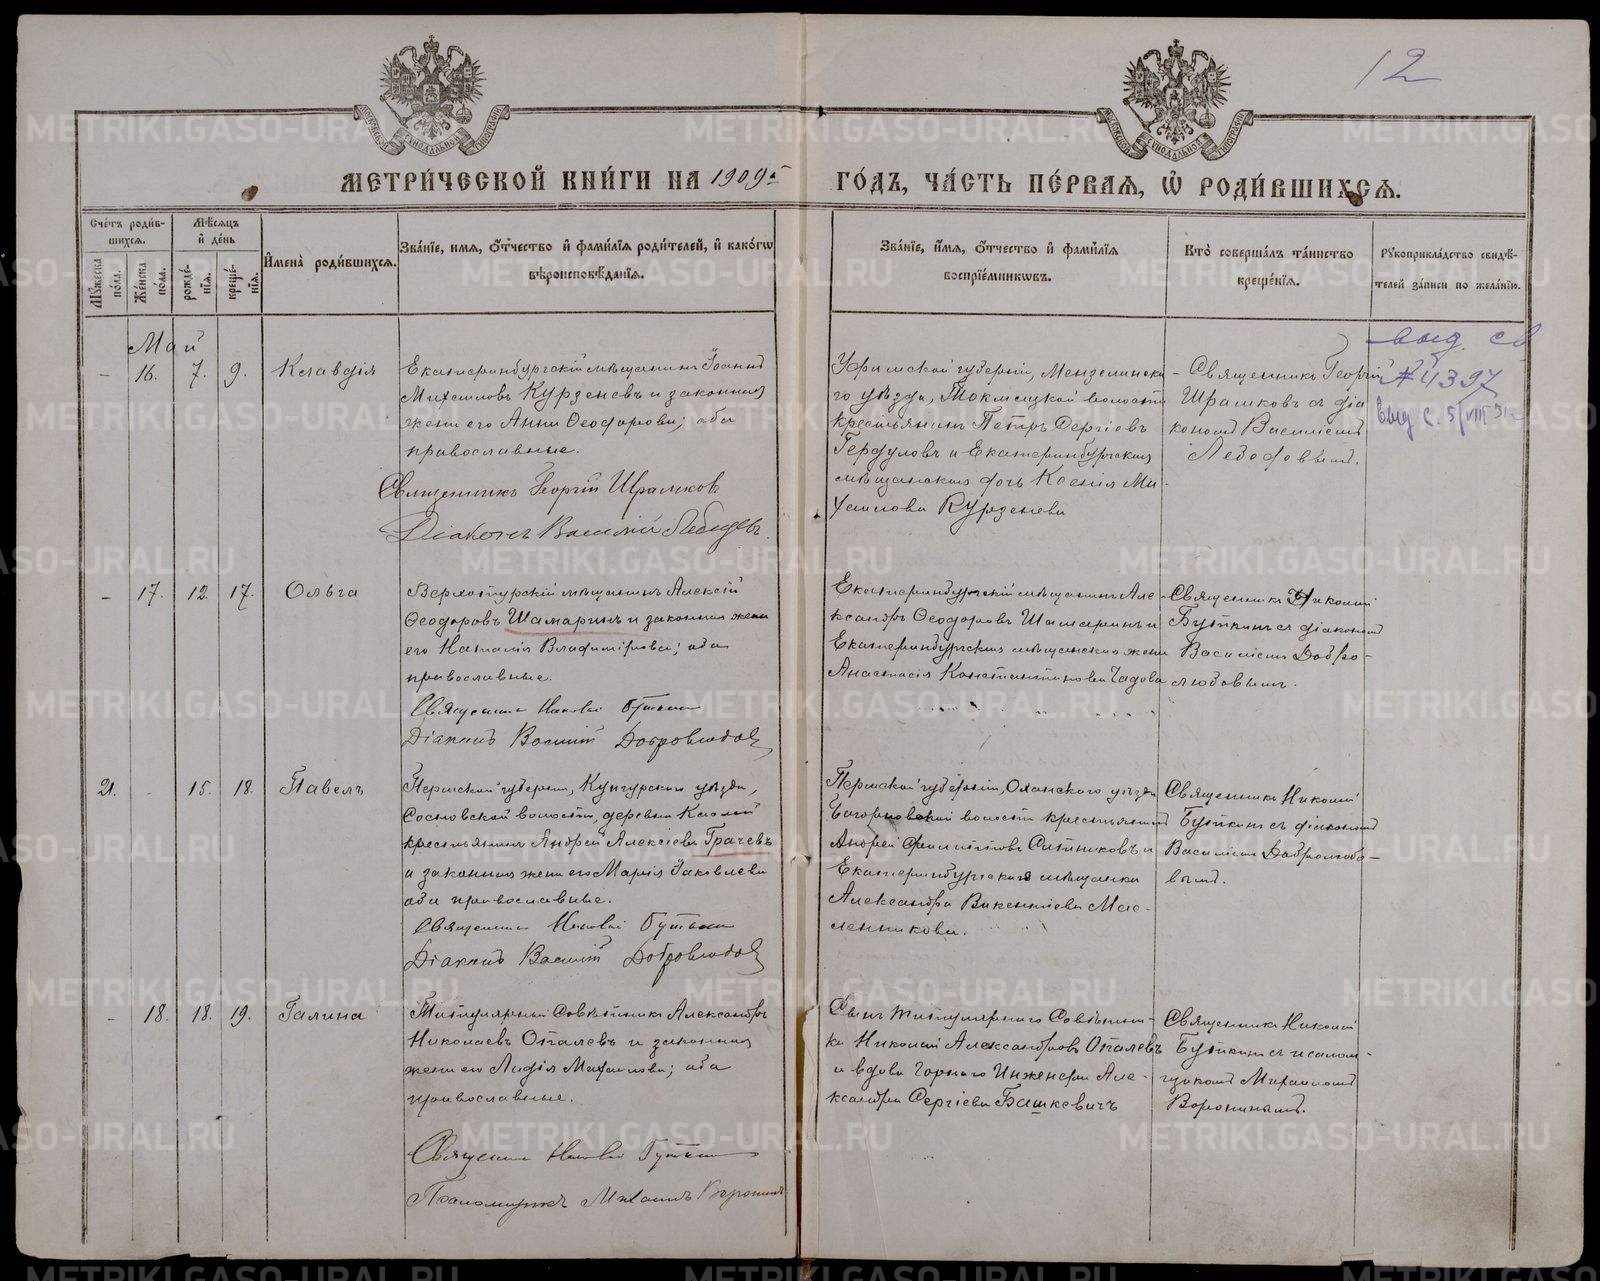 12
МЕТРИЧЕСКОЙ КНИГИ НА 1909й ГОДЪ, ЧАСТЬ ПЕРВАЯ, Ѿ РОДИВШИХСЯ.
Счетъ родив-
шихся.
Мужеска
пола.
Женска
пола.
Мѣсяцъ
и день
рожде-
нія.
креще-
нія.
Имена родившихся.
Званіе, имя, отчество и фамилія родителей, и какогѡ
вѣроисповѣданія.
Званіе, имя, отчество и фамилія
воспріемникѡвъ.
Кто совершалъ таинство
крещенія.
Рукоприкладство свидѣ-
телей записи по желанію.
Май
- 16. 7. 9. Клавдія
Екатеринбургскій мѣщанинъ Іоаннъ
Михаиловъ Курзеневъ и законная
жена его Анна Ѳеодорова; оба
православные.
Священникъ Георгій Шрамковъ
Діаконъ Василій
Уфимской губерніи, Мензелинска-
го уѣзда, Токмацкой волости
крестьянинъ Петръ Сергіевъ
и Екатеринбургская
мѣщанская дочь Ксенія Ми-
хаилова Курзенева
Священникъ Георгій
Шрамковъ съ діа
кономъ Василіемъ
выд. св
№ 4397
Выд. с. 5/VIII
- 17. 12. 17. Ольга
Верхотурскій мѣщанинъ Алексій
Ѳеодоровъ Шамаринъ и законная жена
его Наталія Владимірова; оба
православные.
Священникъ Николай Буткинъ
Діаконъ Василій Добролюбовъ
Екатеринбургскій мѣщанинъ Але-
ксандръ Ѳеодоровъ Шамаринъ и
Екатеринбургская мѣщанская жена
Анастасія Константинова Чадова
Священникъ Николай
Буткинъ съ діакономъ
Василіемъ Добро-
любовымъ.
21. - 15. 18. Павелъ
Пермской губерніи, Кунгурскаго уѣзда,
Сосновской волости, деревни
крестьянинъ Андрей Алексіевъ Грачевъ
и законная жена его Марія Іаковлева
оба православные.
Священникъ Николай Буткинъ
Діаконъ Василій Добролюбовъ
Пермской губерніи, Оханскаго уѣзда
волости крестьянинъ
Андрей Филипповъ Ситниковъ и
Екатеринбургская мѣщанка
Александра Викентіева Мас-
ленникова.
Священникъ Николай
Буткинъ съ діакономъ
Василіемъ Добролюбо-
вымъ.
- 18. 18. 19. Галина
Титулярный Совѣтникъ Александръ
Николаевъ Опалевъ и законная
жена его Лидія Михаилова; оба
православные.
Священникъ Николай Буткинъ
Псаломщикъ Михаилъ Воронинъ
Сынъ Титулярнаго Совѣтни-
ка Николай Александровъ Опалевъ
и вдова Горнаго Инженера Але-
ксандра Сергіева Башкевичъ
Священникъ Николай
Буткинъ съ псалом-
щикомъ Михаиломъ
Воронинымъ.